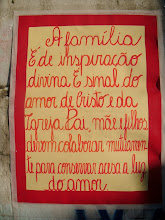 A família
É de inspiração
divina É sinal do
amor de Cristo e da
Igreja. Pai, mãe e filhos
devem colaborar mutuamen
te para conservar acesa a luz
do amor